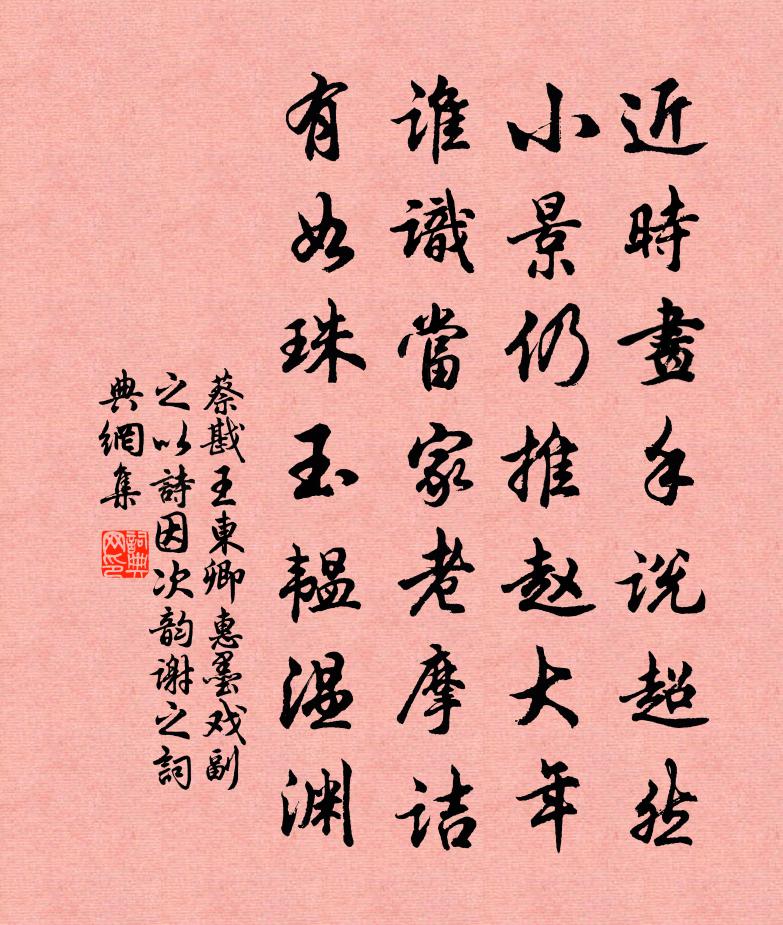 近時畫手说超然
小景仍推赵大年
誰識當家老摩詰
有如珠玉韫温渊
蔡戡王東卿惠墨戏副
之以詩因次韵谢之詞
典網集
詞典网印